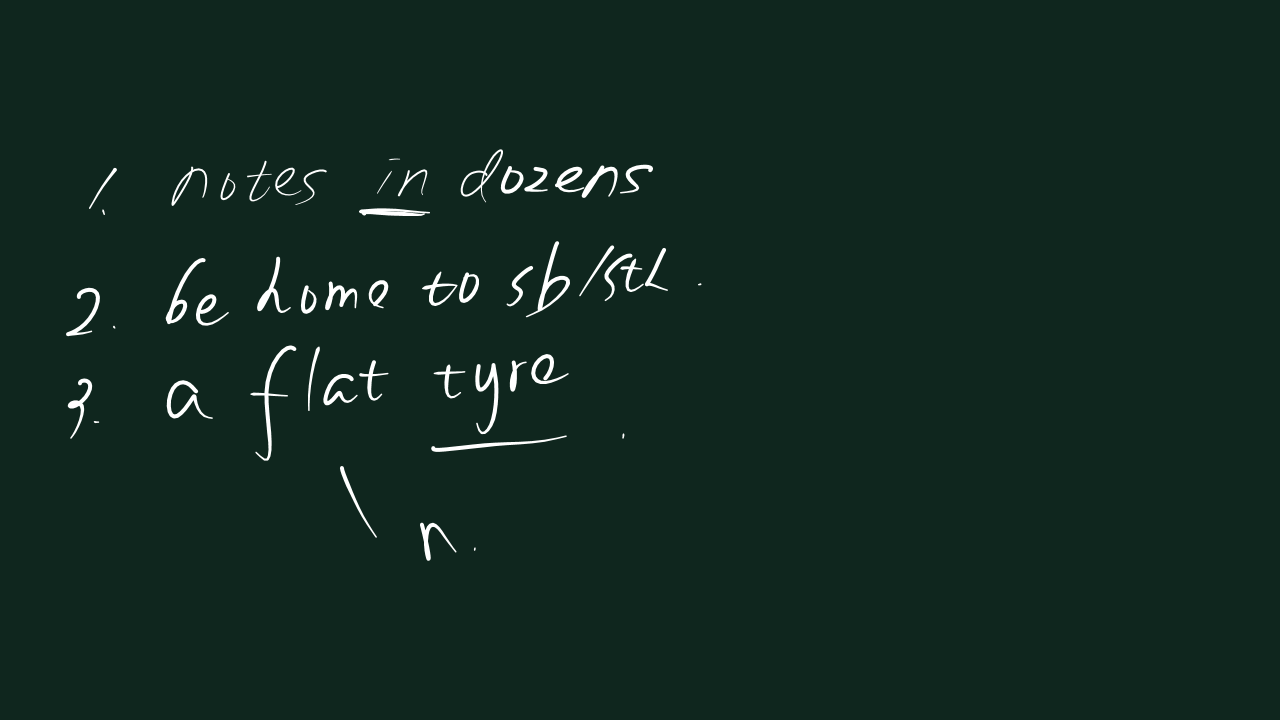 1. notes in dozens
2. be home to sb/sth.
3. a flat tyre.
n.